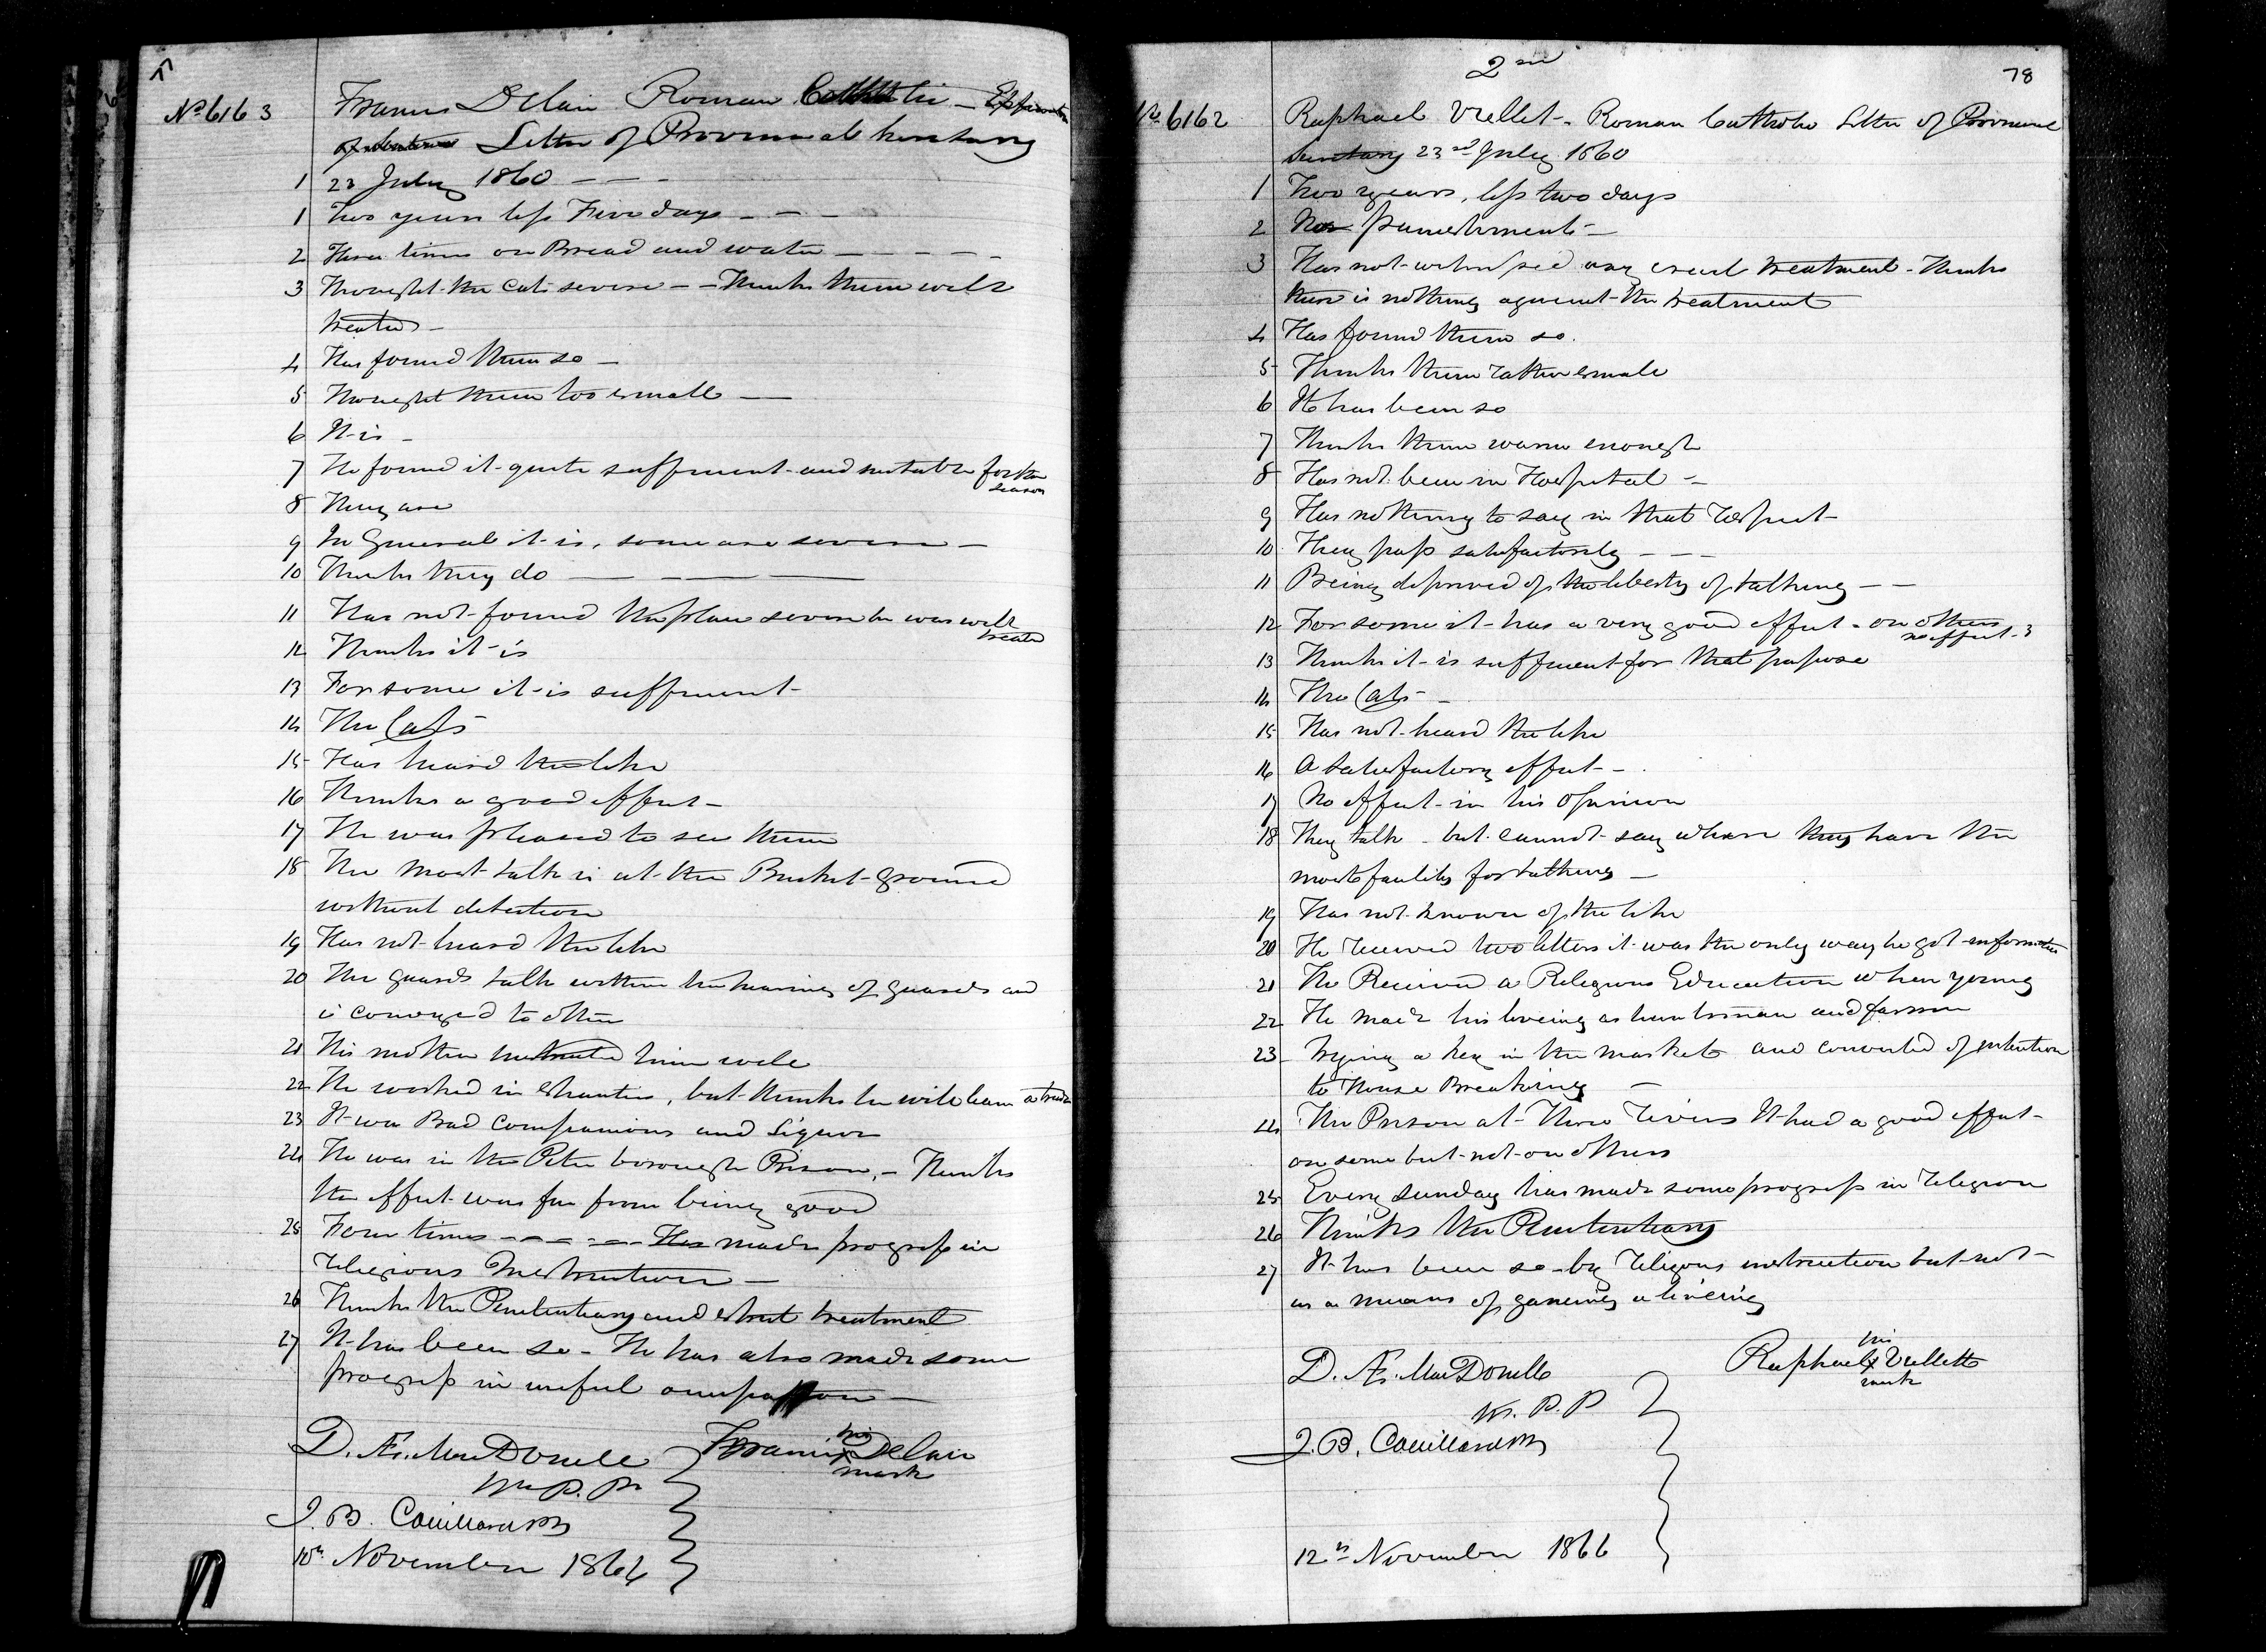 No 6163 Francis Delair Roman Catholic - Expiration
of Sentence Letter of Provincial Secretary
1 23 July 1860 - - -
1 Two years less Five days - - -
2 Three times on Bread and water - - - - -
3 Thought the Cats severe - - Thinks them well
treated -
4 Has found them so -
5 Thought them too small -
6 It is -
7 He found it quite sufficient and suitable for the
season
8 They are
9 In General it is, some are severe -
10 Thinks they do - - -
11 Has not found the place severe he was well
treated
12 Thinks it is
13 For some it is sufficient -
14 The Cats
15 Has heard the like
16 Thinks a good effect -
17 He was pleased to see them
18 The most talk is at the Bucket Ground
without detection
19 Has not heard the like
20 The guards talk within the hearing of guards and
is conveyed to others
21 His mother instructed him well
22 He worked in Shanties, but thinks he will learn a trade
23 It was Bad Companions and Liquor
24 He was in the Peterborough Prison, - Thinks
the effect was far from being good
25 Four times - - - - - Has made progress in
religious Instruction -
26 Thinks the Penitentiary and strict treatment
27 It has been so - He has also made some
progress in useful occupation -
D. Æ. MacDonell
J. B. Couillard
10th November 1866
Francis his x mark Delair
2nd
78
No 6162 Raphael Vellet - Roman Catholic Letter of Provincial
Secretary 23rd July 1860
1 Two years, less two days
2 No punishments -
3 Has not witnessed any cruel treatment - Thinks
there is nothing against the treatment
4 Has found them so.
5 Thinks them rather small
6 It has been so
7 Thinks them warm enough
8 Has not been in Hospital -
9 Has nothing to say in that respect -
10 They pass satisfactorily - - -
11 Being deprived of the liberty of talking - -
12 For some it has a very good effect - on others
no effect -
13 Thinks it is sufficient for that purpose
14 The Cats -
15 Has not heard the like
16 A satisfactory effect -
17 No effect in his opinion
18 They talk - but cannot say where they have the
most facility for talking -
19 Has not known of the like
20 He received two letters it was the only way he got information
21 He Received a Religious Education when young
22 He made his liveing as huntsman and farmer
23 Trying a key in the market and convicted of intention
to House Breaking -
24 The Prison at Three Rivers It had a good effect -
on some but not on others
25 Every Sunday has made some progress in religion
26 Thinks the Penitentiary
27 It has been so - by religious instruction but not -
as a means of gaining a liveing
D. Æ. MacDonell
M. P. P
J. B. Couillard
12th November 1866
Raphael his x mark Vellette